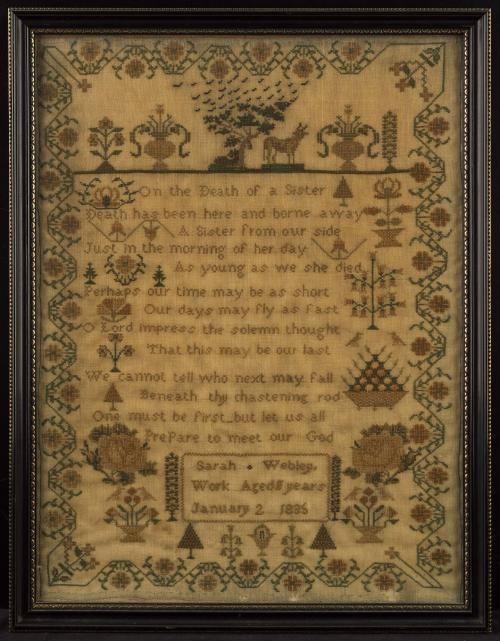 On the Death of a Sister
Death has been here and borne away
A Sister from our side
Just in the morning of her day
As young as we she died
Perhaps our time may be as short
Our days may fly as fast
O Lord impress the solemn thought
That this may be our last
We cannot tell who next may fall
Beneath thy chastening rod
One must be first but let us all
Prepare to meet our God
Sarah Webley
Work Aged 8 years
January 2 1836